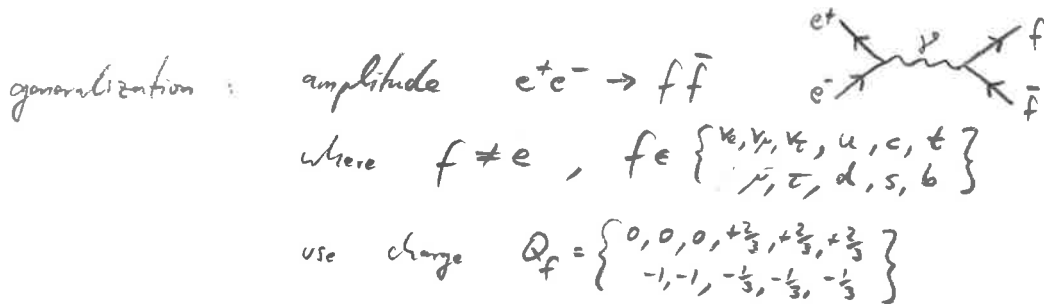 generalization : amplitude e⁺e⁻ → f f̄
e⁺ e⁻ γ f f̄
where f ≠ e , f ∈ { νe, νμ, ντ, u, c, t
μ, τ, d, s, b }
use charge Q_f = { 0, 0, 0, +2/3, +2/3, +2/3
-1, -1, -1/3, -1/3, -1/3 }